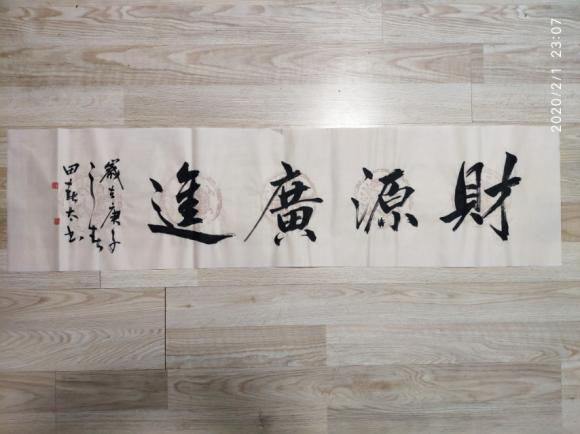 財源廣進
歲在庚子
之春
田春大书
2020/2/1 23:07